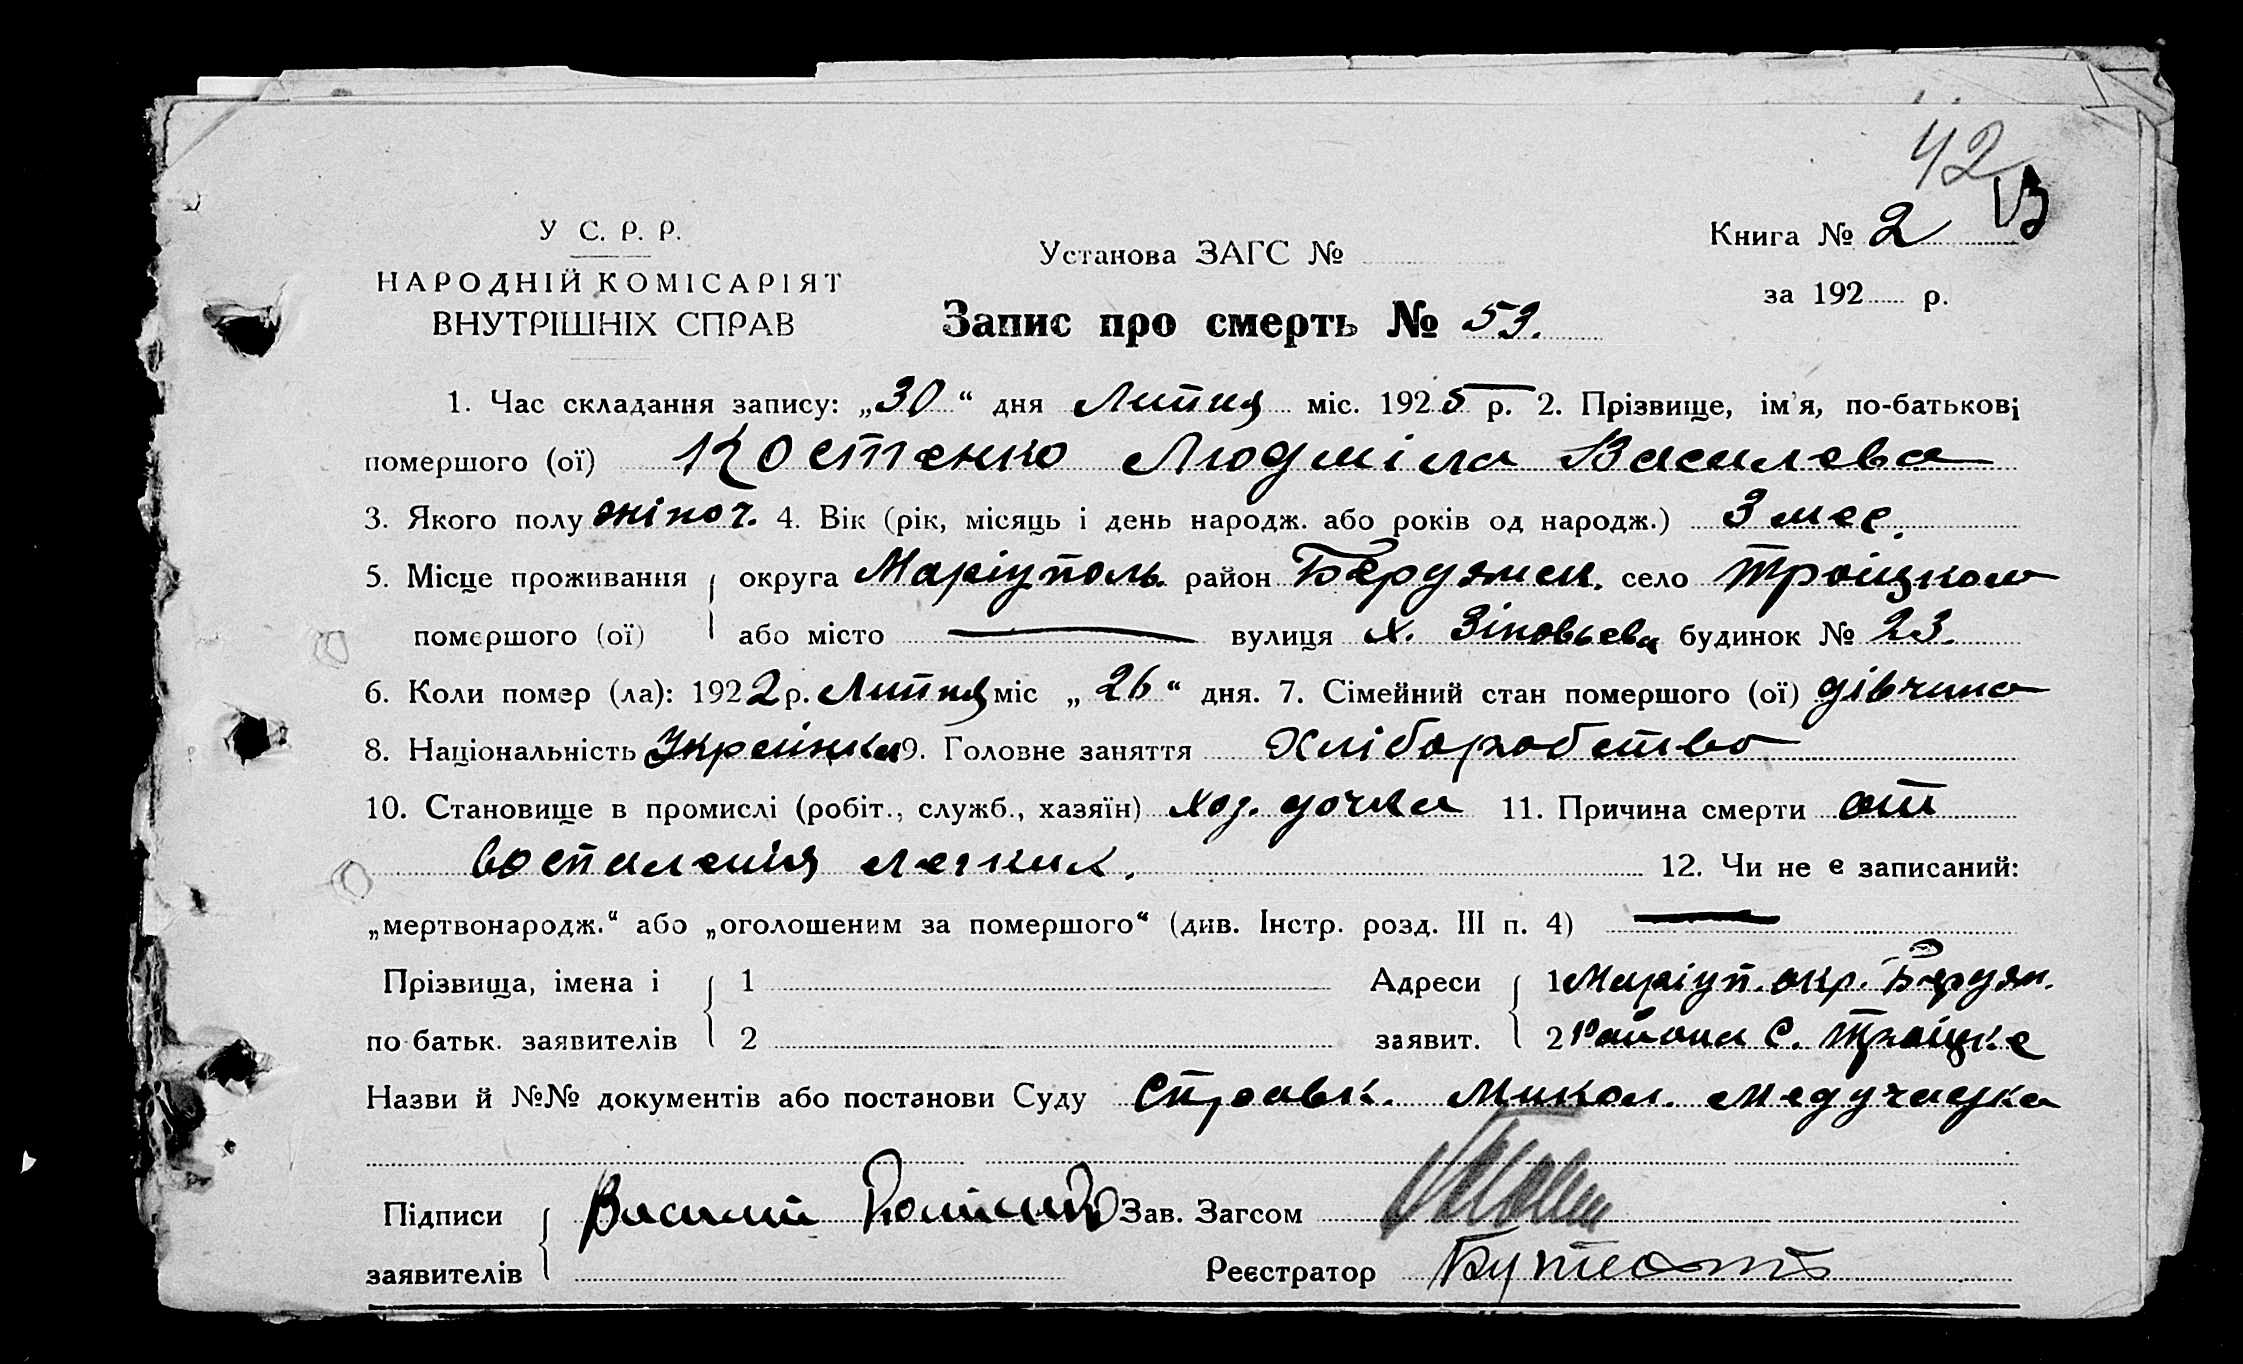 42
У С. Р. Р.
НАРОДНІЙ КОМІСАРІЯТ
ВНУТРІШНІХ СПРАВ
Установа ЗАГС №
Книга № 2
за 192 р.
Запис про смерть № 59.
1. Час складання запису: „30“ дня Липця міс. 1925 р. 2. Прізвище, ім'я, по-батькові
помершого (ої) Костенко Людміла Василева
3. Якого полу жіноч. 4. Вік (рік, місяць і день народж. або років од народж.) 3 мес.
5. Місце проживання округа Маріуполь. район Бердянск. село Троїцком
помершого (ої) або місто — вулиця х. Зіновьева будинок № 23.
6. Коли помер (ла): 1922 р. Липця міс „26“ дня. 7. Сімейний стан помершого (ої) дівчина
8. Національність Украінка 9. Головне заняття Хліборобство
10. Становище в промислі (робіт., служб., хазяїн) хоз. дочка 11. Причина смерти от
воспаленія легких. 12. Чи не є записаний:
„мертвонародж.“ або „оголошеним за помершого“ (див. Інстр. розд. III п. 4) —
Прізвища, імена і 1 Адреси 1 Маріуп. окр. Бердян.
по батьк. заявителів 2 заявит. 2 района С. Троїцке
Назви й №№ документів або постанови Суду Справк. Микол. Медучастка
Підписи Василий Зав. Загсом
заявителів Реєстратор